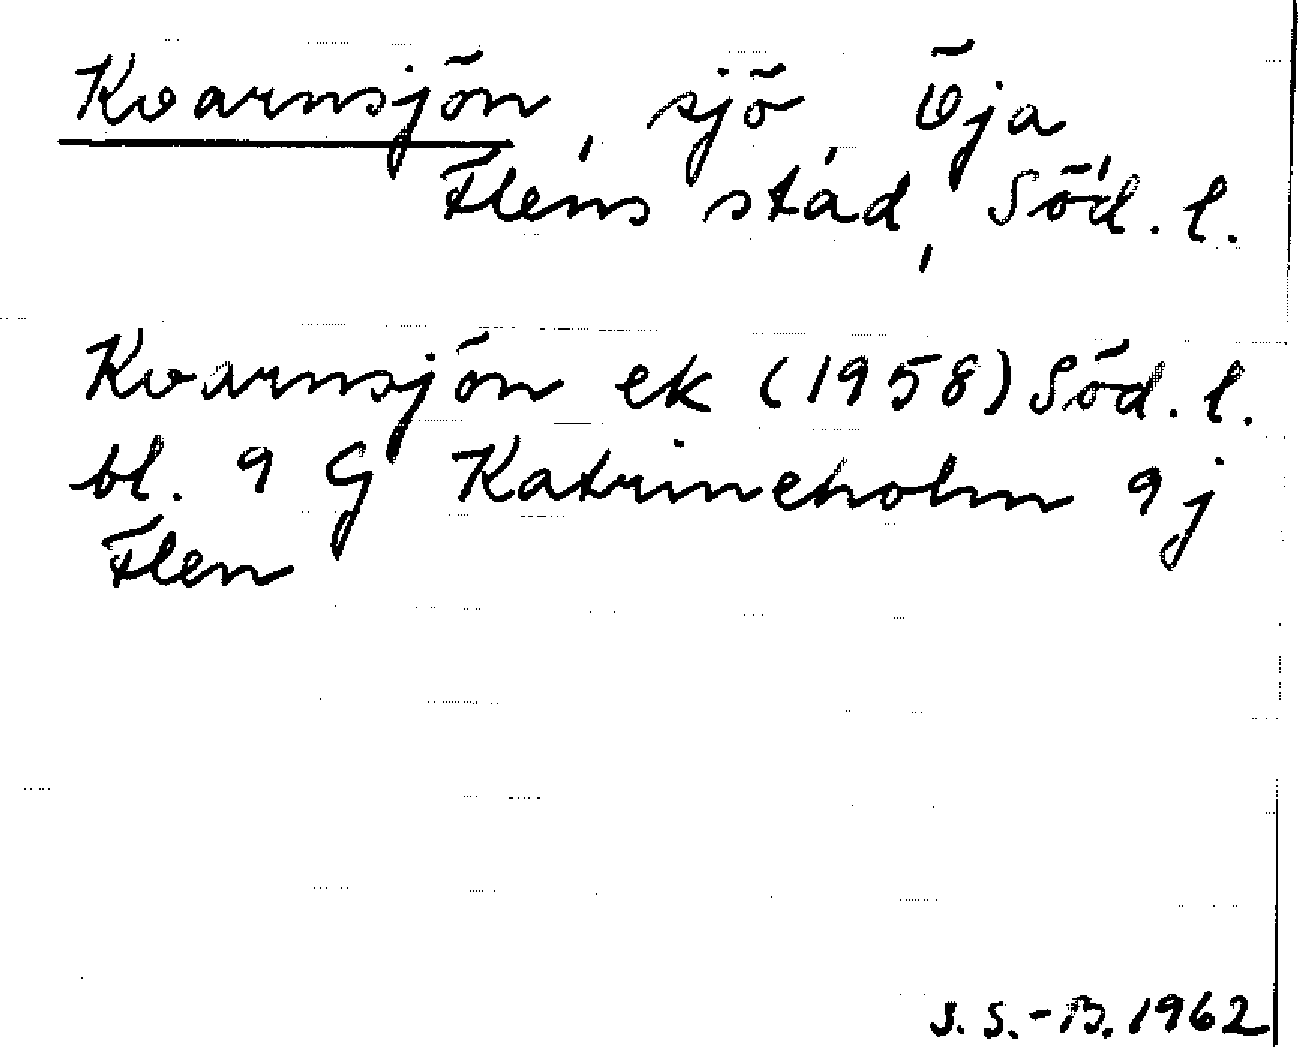 Kvarnsjön, sjö, Öja,
Flens stad, Söd. l.
Kvarnsjön ek (1958) Söd. l.
bl. 9 G Katrineholm 9 j
Flen
S. S.-B. 1962